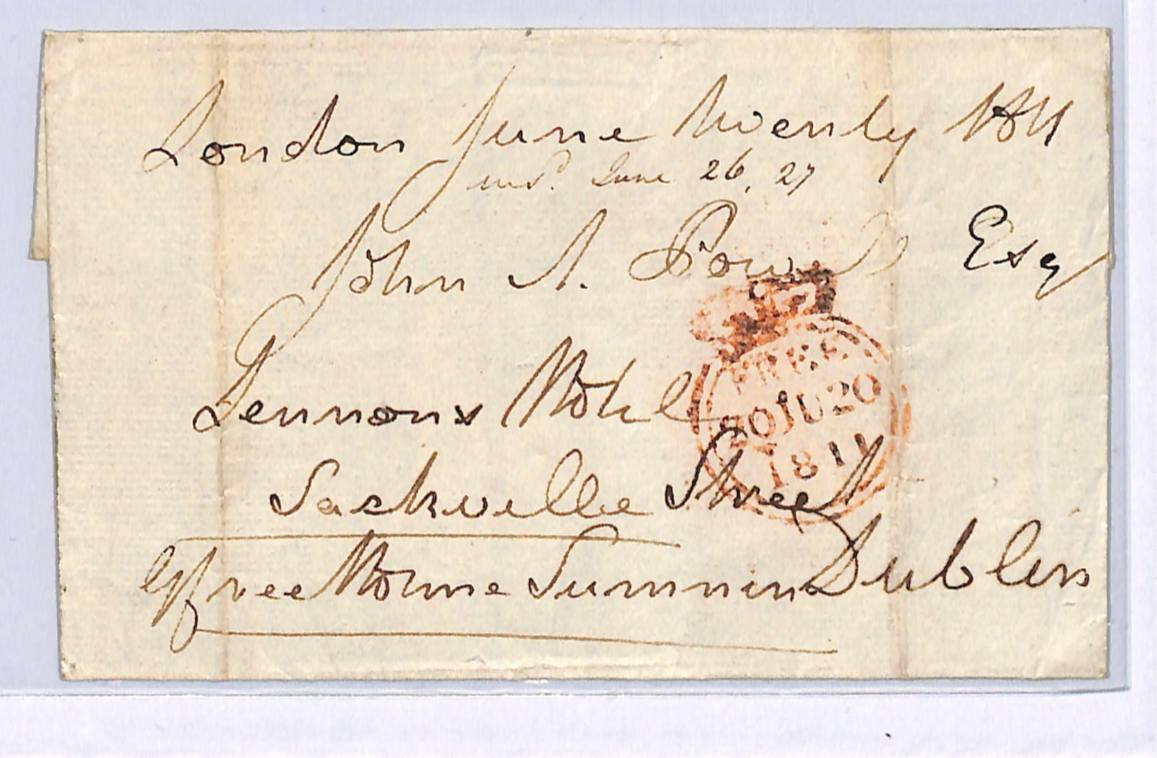 London June Twenty 1811
ansd. June 26, 27
John A. Power Esq
Lennons Hotel
Sackville Street
Dublin
free
FREE
20 JU 20
1811